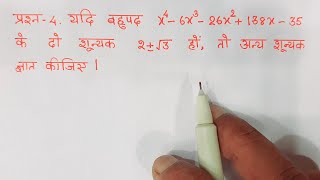 प्रश्न-4. यदि बहुपद x⁴-6x³-26x²+138x-35
के दो शून्यक 2±√3 हों, तो अन्य शून्यक
ज्ञात कीजिए।